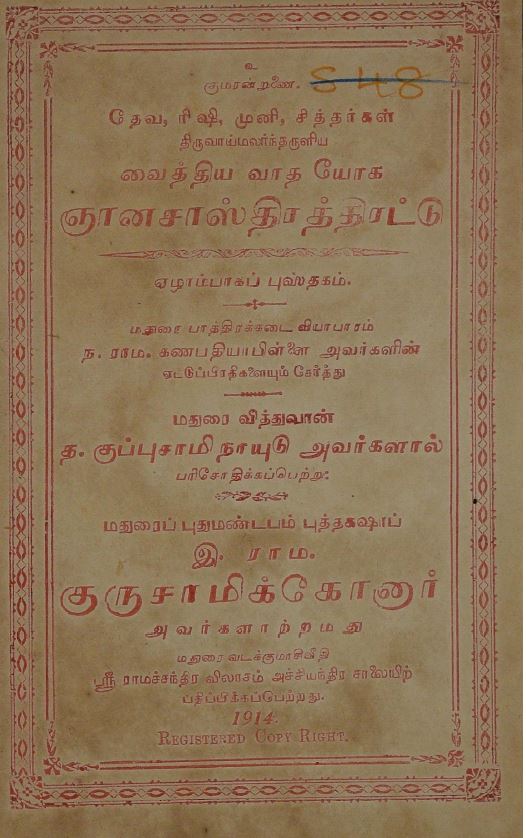 உ
குமரன்றுணை.
S 48
தேவ, ரிஷி, முனி, சித்தர்கள்
திருவாய்மலர்ந்தருளிய
வைத்திய வாத யோக
ஞானசாஸ்திரத்திரட்டு
ஏழாம்பாகப் புஸ்தகம்.
மதுரை பாத்திரக்கடை வியாபாரம்
ந. ராம. கணபதியாபிள்ளை அவர்களின்
ஏட்டுப்பிரதிகளையும் சேர்த்து
மதுரை வித்துவான்
த. குப்புசாமிநாயுடு அவர்களால்
பரிசோதிக்கப்பெற்று:
மதுரைப் புதுமண்டபம் புத்தகஷாப்
இ. ராம.
குருசாமிக்கோனார்
அவர்களாற்றமது
மதுரை வடக்குமாசிவீதி
ஸ்ரீ ராமச்சந்திர விலாசம் அச்சியந்திர சாலையிற்
பதிப்பிக்கப்பெற்றது.
1914.
REGISTERED COPY RIGHT.